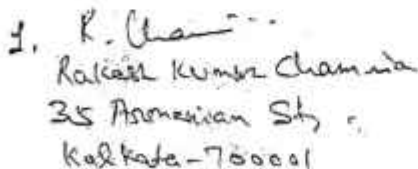 1. R. Cham
Rakesh Kumar Chamria
35 Armenian St,
Kolkata-700001